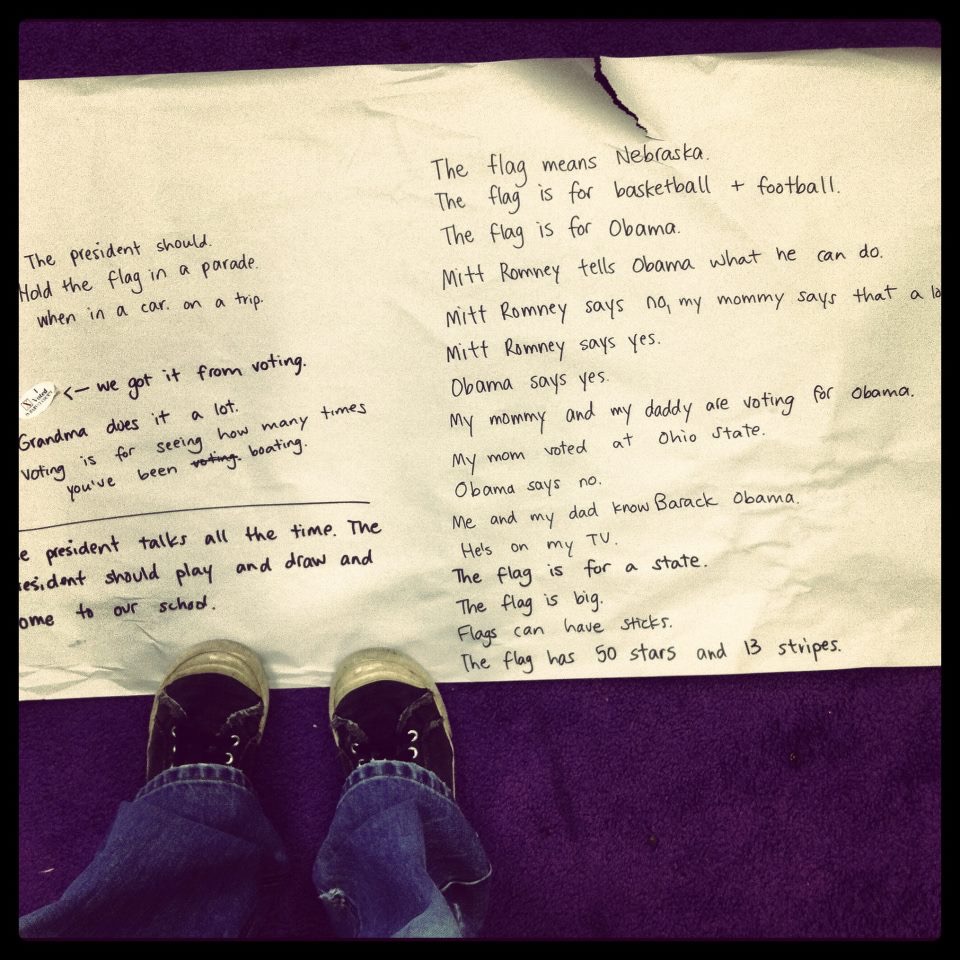 The president should.
Hold the flag in a parade.
when in a car. on a trip.
I Voted
<— we got it from voting.
Grandma does it a lot.
Voting is for seeing how many times
you've been voting. boating.
e president talks all the time. The
esident should play and draw and
ome to our school.
The flag means Nebraska.
The flag is for basketball + football.
The flag is for Obama.
Mitt Romney tells Obama what he can do.
Mitt Romney says no, my mommy says that a lo
Mitt Romney says yes.
Obama says yes.
My mommy and my daddy are voting for Obama.
My mom voted at Ohio State.
Obama says no.
Me and my dad know Barack Obama.
He's on my TV.
The flag is for a state.
The flag is big.
Flags can have sticks.
The flag has 50 stars and 13 stripes.